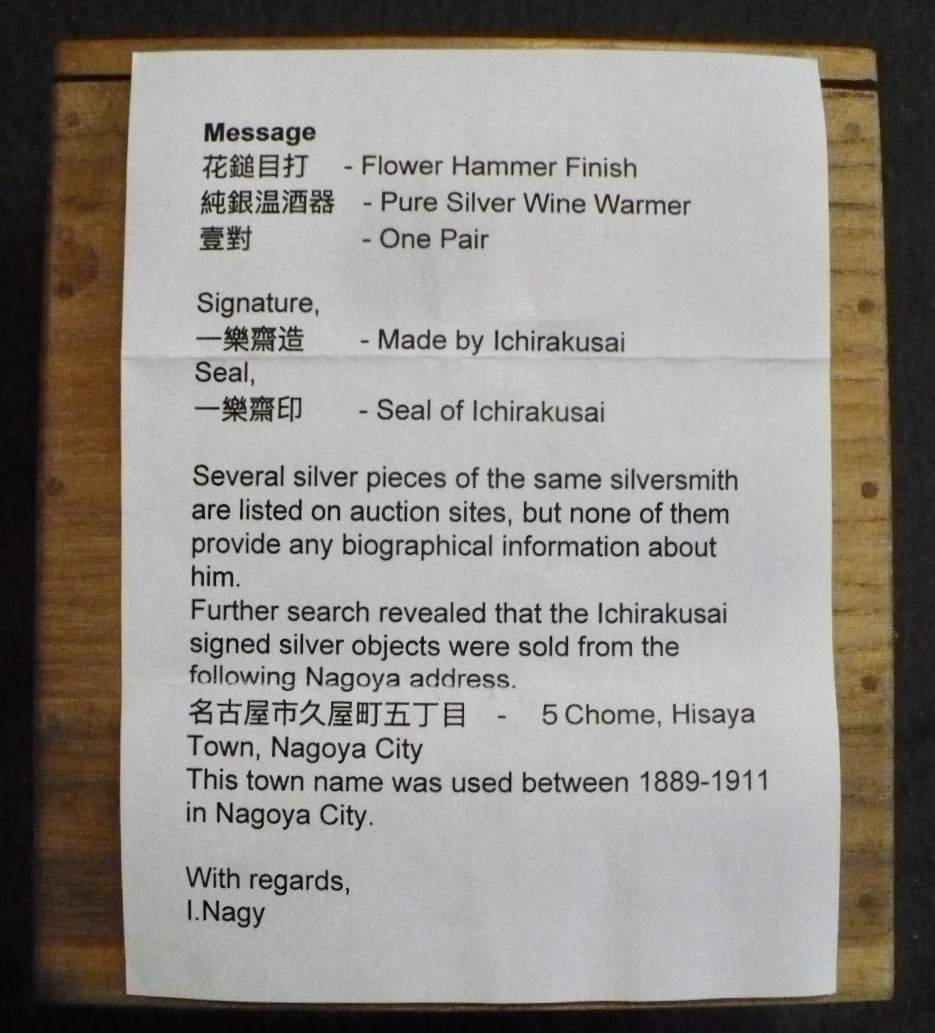 Message
花鎚目打 - Flower Hammer Finish
純銀温酒器 - Pure Silver Wine Warmer
壹對 - One Pair
Signature,
一樂齋造 - Made by Ichirakusai
Seal,
一樂齋印 - Seal of Ichirakusai
Several silver pieces of the same silversmith
are listed on auction sites, but none of them
provide any biographical information about
him.
Further search revealed that the Ichirakusai
signed silver objects were sold from the
following Nagoya address.
名古屋市久屋町五丁目 - 5 Chome, Hisaya
Town, Nagoya City
This town name was used between 1889-1911
in Nagoya City.
With regards,
I.Nagy